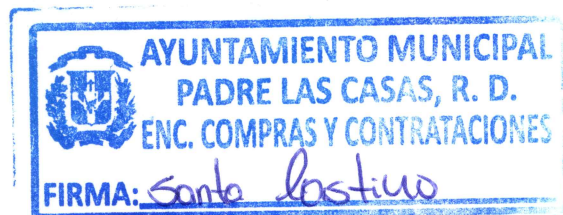 AYUNTAMIENTO MUNICIPAL
PADRE LAS CASAS, R. D.
ENC. COMPRAS Y CONTRATACIONES
FIRMA: Santo